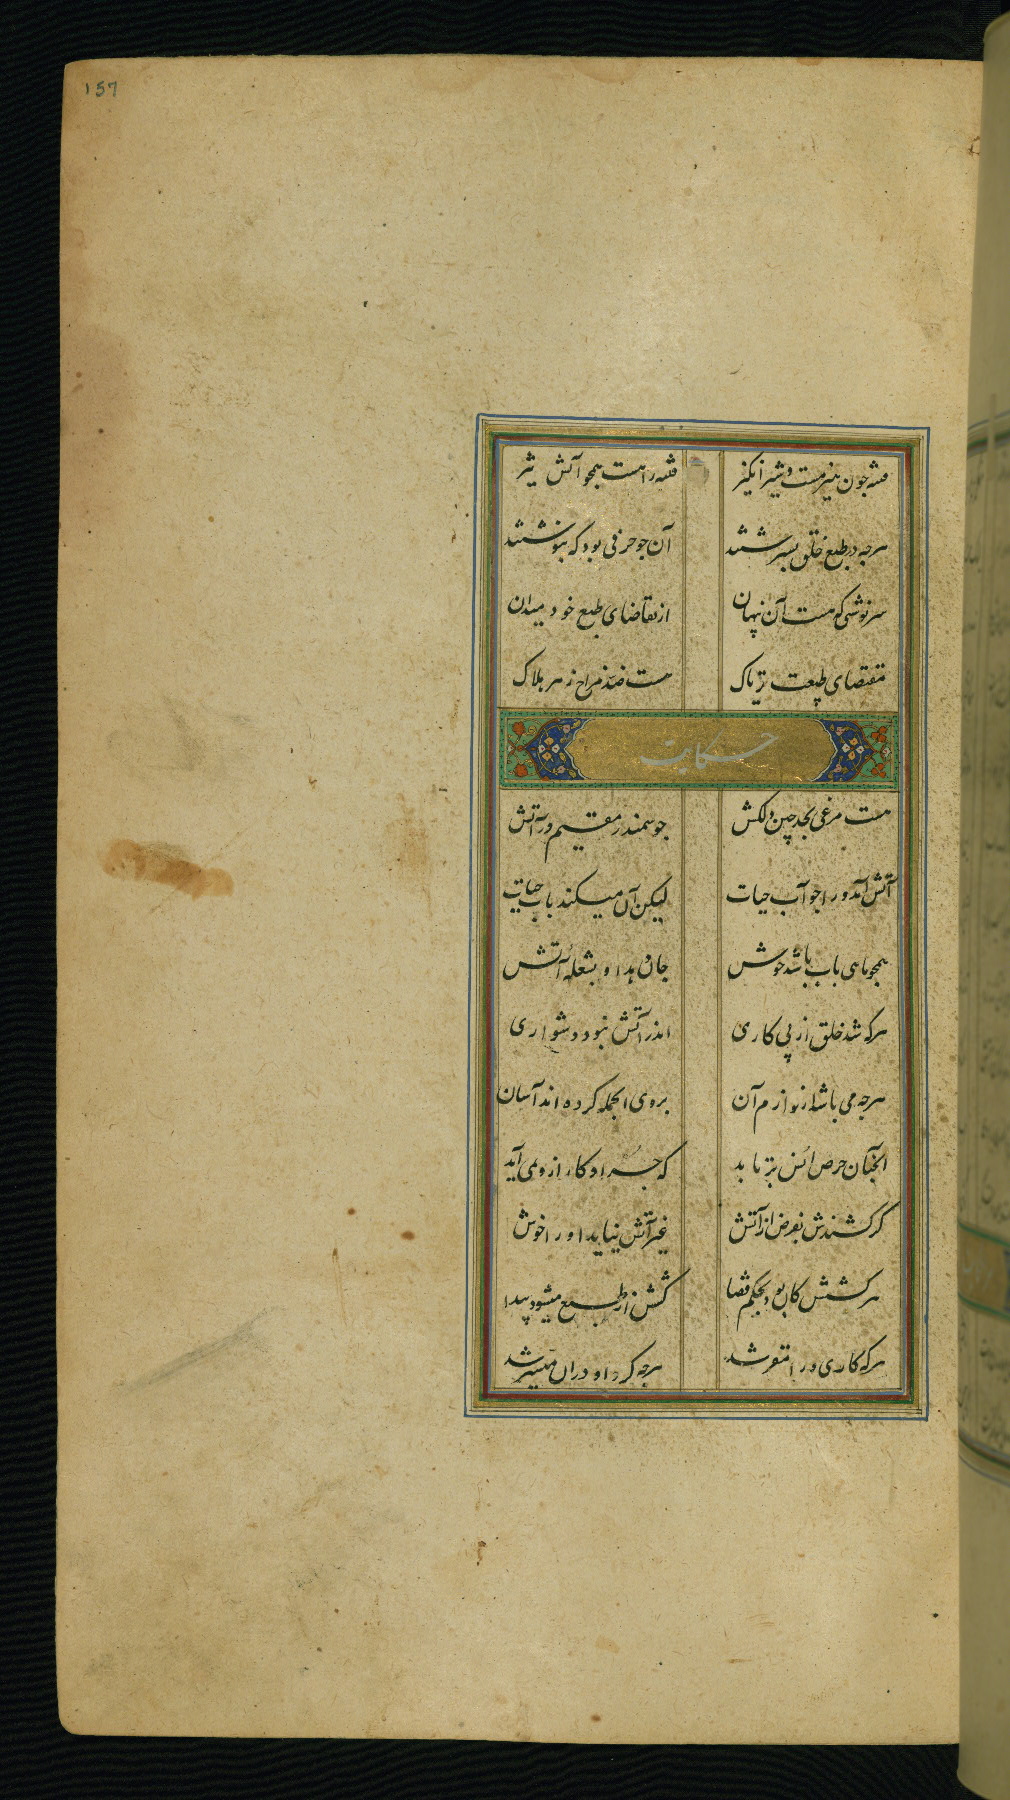 157
فتنه چون نیز هست و شیر انگیز فتنه را هست همچو آتش تیز
هرچه در طبع خلق بسرشتند آن چو حرفی بود که بنوشتند
سرنوشتی که هست آن پنهان از تقاضای طبع خود میدان
مقتضای طبیعت تریاک هست ضد مزاج زهر هلاک
حکایت
هست مرغی بحد چین دلکش چو سمندر مقیم در آتش
آتش آمد ورا چو آب حیات لیکن آن میکند باب حیات
همچو ماهی باب باشد خوش جان دهد او بشعله آتش
هرکه شد خلق از پی کاری اندر آتش نبود دشواری
هرچه می باشد از لوازم آن بروی الجمله کرده اند آسان
آنچنان حرص که جز او کار از و نمی آید
گر کشندش بعرض از آتش غیر آتش نیاید او را خوش
هر کشش کان بود بحکم قضا کشش از طبع میشود پیدا
هرکه کاری ورا مقرر شد هرچه کرد او دران میسر شد